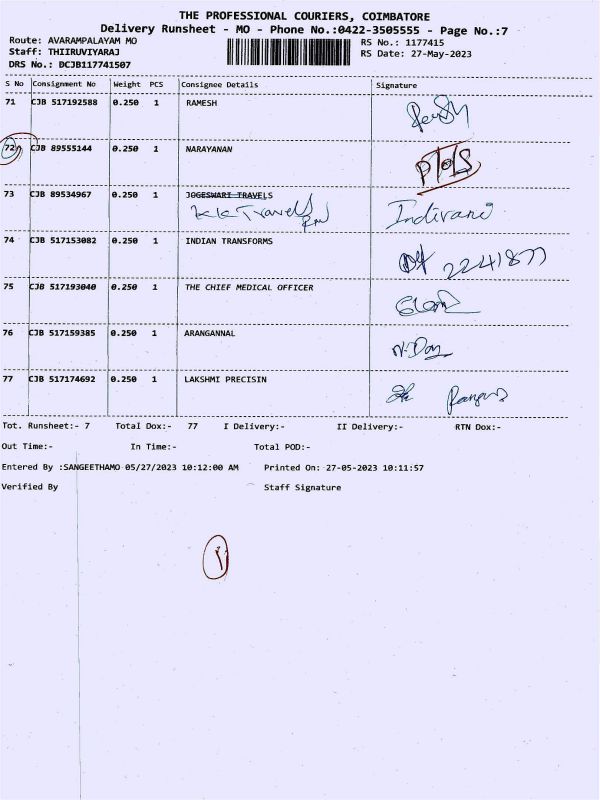 THE PROFESSIONAL COURIERS, COIMBATORE
Delivery Runsheet - MO - Phone No.:0422-3505555 - Page No.:7
Route: AVARAMPALAYAM MO
RS No.: 1177415
Staff: THIIRUVIYARAJ
RS Date: 27-May-2023
DRS No.: DCJB117741507
S No Consignment No Weight PCS Consignee Details Signature
71 CJB 517192588 0.250 1 RAMESH
72 CJB 89555144 0.250 1 NARAYANAN
73 CJB 89534967 0.250 1 JOGESWARI TRAVELS
KK Travels
Indirani
74 CJB 517153082 0.250 1 INDIAN TRANSFORMS
2241877
75 CJB 517193040 0.250 1 THE CHIEF MEDICAL OFFICER
76 CJB 517159385 0.250 1 ARANGANNAL
77 CJB 517174692 0.250 1 LAKSHMI PRECISIN
Tot. Runsheet:- 7 Total Dox:- 77 I Delivery:- II Delivery:- RTN Dox:-
Out Time:- In Time:- Total POD:-
Entered By :SANGEETHAMO 05/27/2023 10:12:00 AM Printed On: 27-05-2023 10:11:57
Verified By Staff Signature